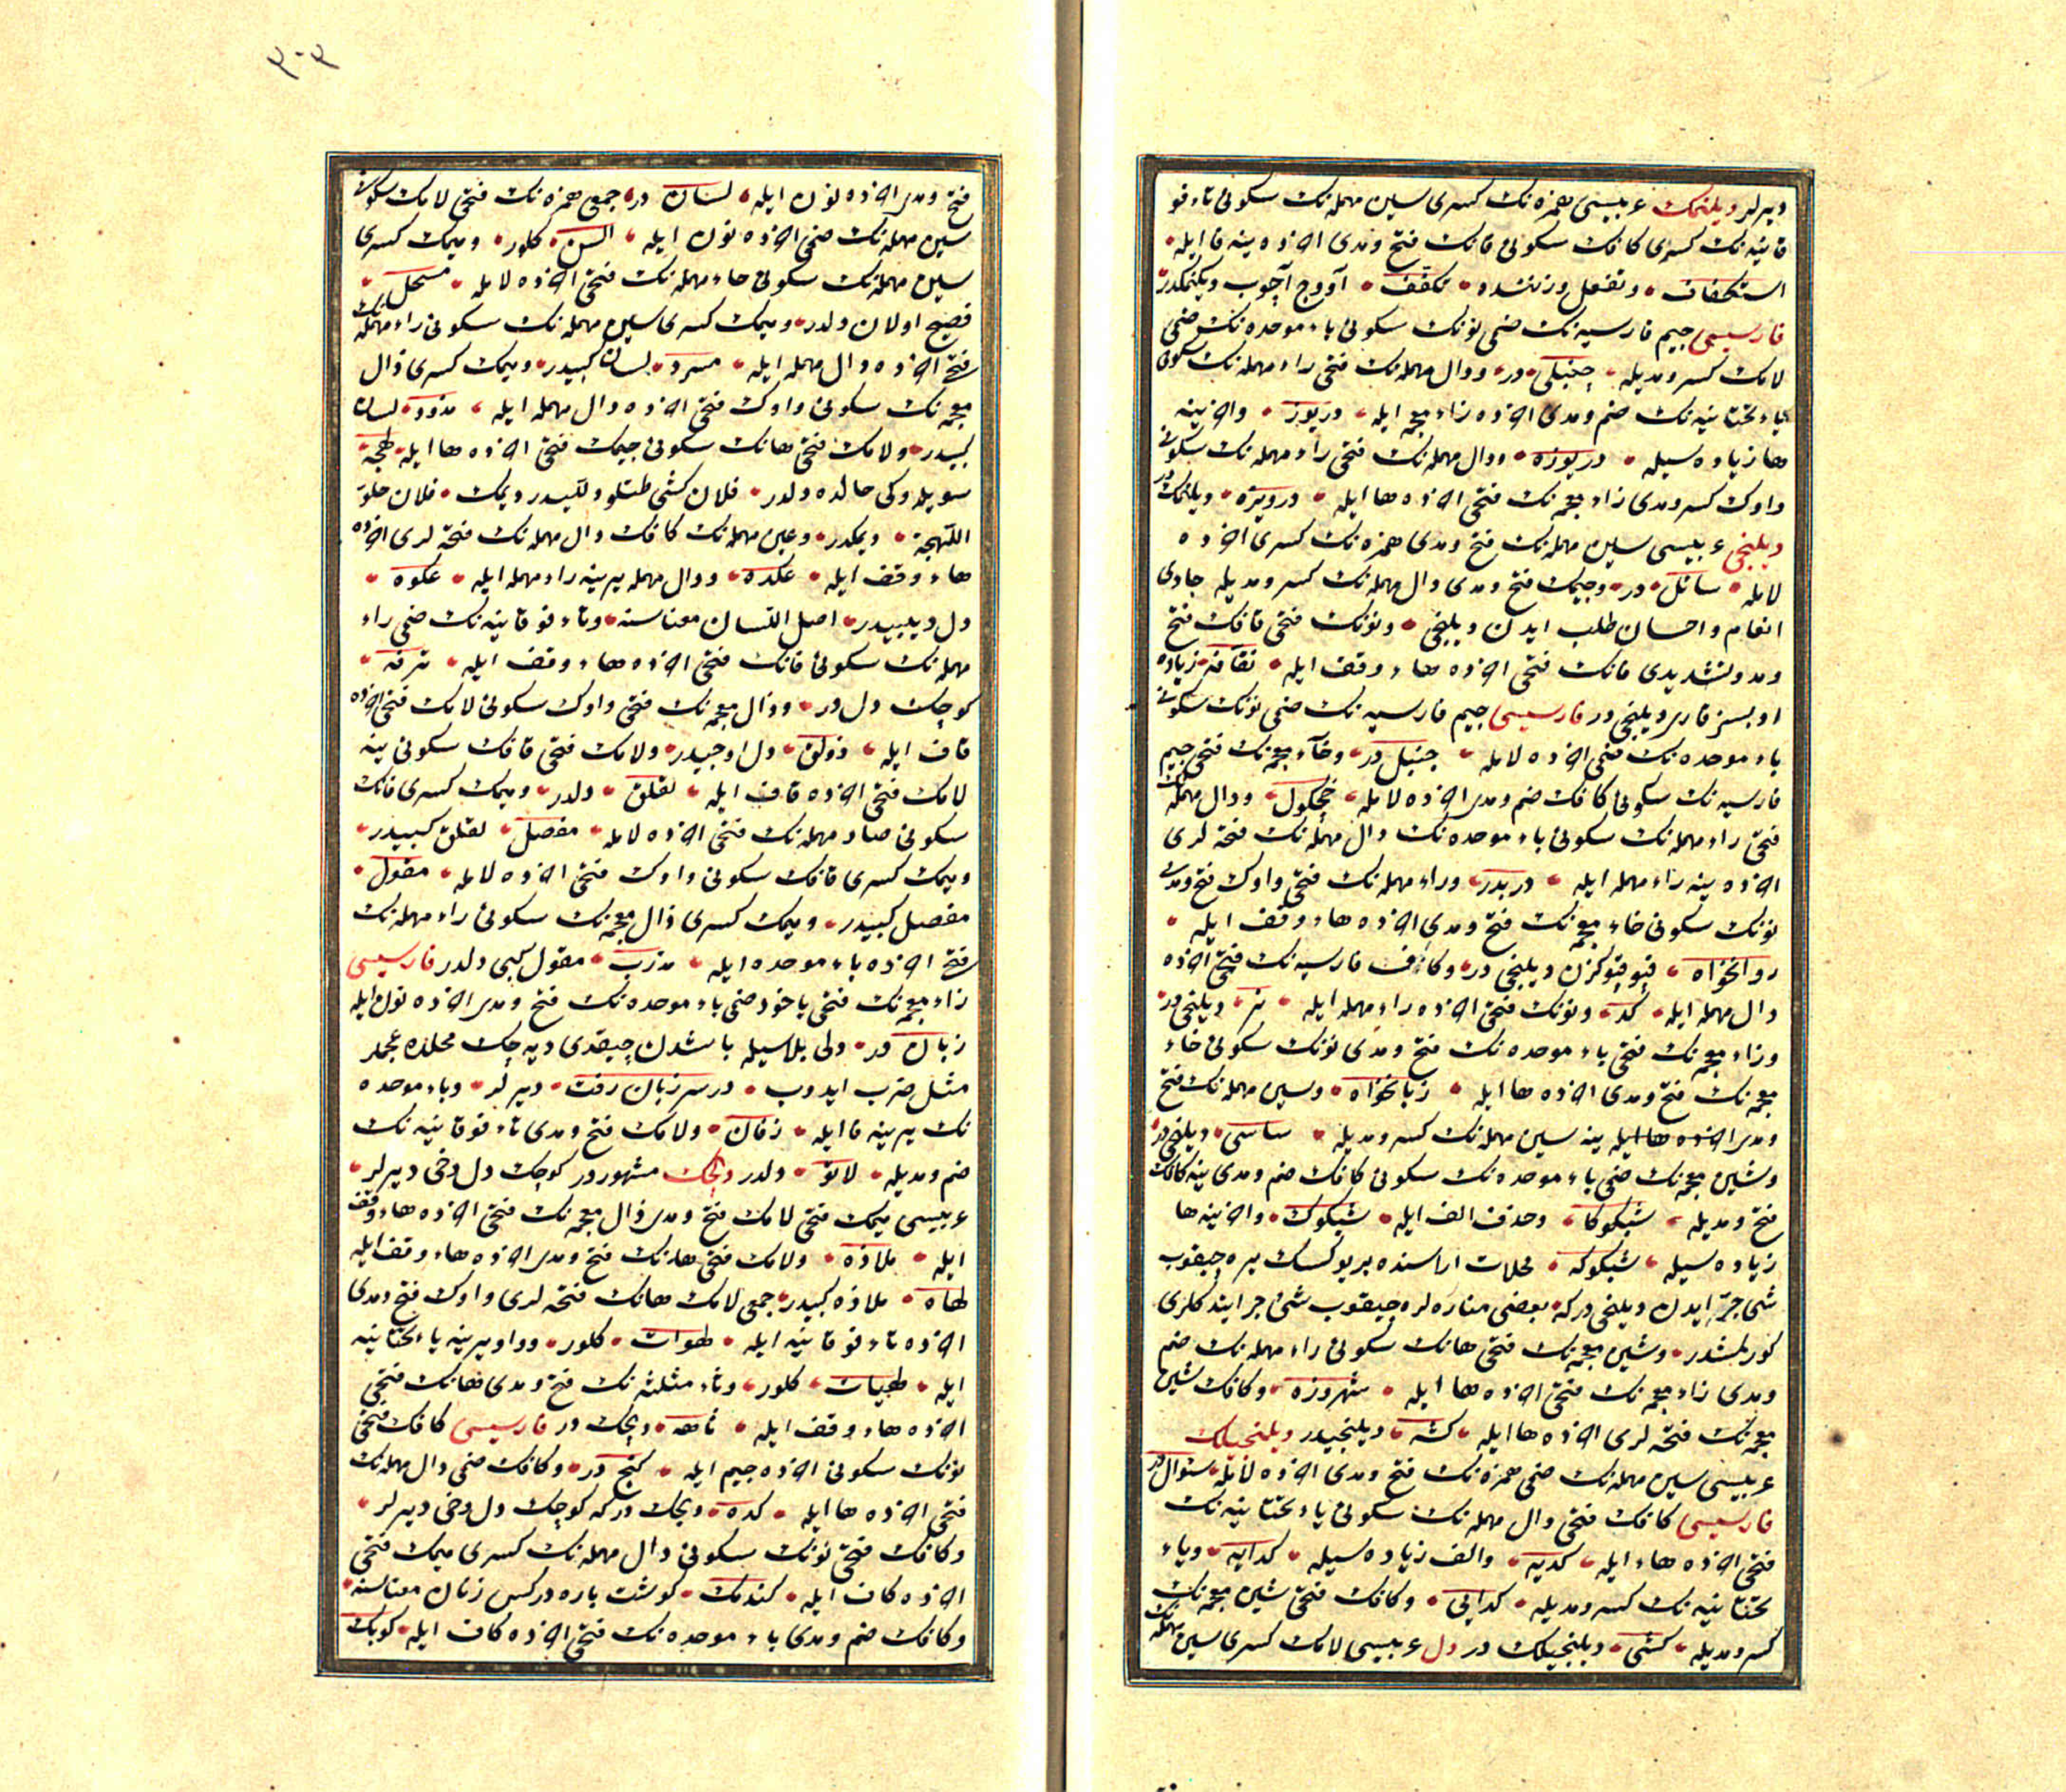 ديرلر ديلنمك عربيسى همزه نك كسرى سين مهمله نك سكونى تاء فو
قانيه نك كسرى كافك سكونى فانك فتح و مدى اخرنده ينه فا ايله
استكفاف و تفعل وزننده تكفف آووج آچوب ديلنمكدر
فارسيسى جيم فارسيه نك ضمى نونك سكونى باء موحده نك ضمى
لامك كسر و مديله چنبلى در و دال مهمله نك فتحى راء مهمله نك سكونى
ياء تحتانيه نك ضم و مدى اخرنده زاء معجمه ايله دريوز و اخرينه
ها زياده سيله دريوزه و دال مهمله نك فتحى راء مهمله نك سكونى
واوك كسر و مدى زاء معجمه نك فتحى اخرنده ها ايله درويزه ديلنمك در
ديلنجى عربيسى سين مهمله نك فتح و مدى همزه نك كسرى اخرنده
لامله سائل در و جيمك فتح و مدى دال مهمله نك كسر و مديله جادى
انعام و احسان طلب ايدن ديلنجى و نونك فتحى قافك فتح
و مد و تشديدى فانك فتحى اخرنده هاء وقف ايله نقافه زياده
اوبسز قارر ديلنجى در فارسيسى جيم فارسيه نك ضمى نونك سكونى
باء موحده نك ضمى اخرنده لامله چنبل در و خاء معجمه نك فتحى جيم
فارسيه نك سكونى كافك ضم و مدى اخرنده لامله خچكول و دال مهمله نك
فتحى راء مهمله نك سكونى باء موحده نك دال مهمله نك فتحه لرى
اخرنده ينه راء مهمله ايله دربدر و راء مهمله نك فتحى واوك فتح و مدى
نونك سكونى خاء معجمه نك فتح و مدى اخرنده هاء وقف ايله
روانخواه قپو قپو كزن ديلنجى در و كاف فارسيه نك فتحى اخرنده
دال مهمله ايله كد و نونك فتحى اخرنده راء مهمله ايله نر ديلنجى در
و زاء معجمه نك فتحى باء موحده نك فتح و مدى نونك سكونى خاء
معجمه نك فتح و مدى اخرنده ها ايله زبانخواه و سين مهمله نك فتح
و مدى اخرنده ها ايله ينه سين مهمله نك كسر و مديله ساسى ديلنجى در
و شين معجمه نك ضمى باء موحده نك سكونى كافك ضم و مدى ينه كافك
فتح و مديله شبكوكا و حذف الف ايله شبكوك و اخرينه ها
زياده سيله شبكوكه محلات اراسنده بر يوكسك يره چيقوب
شى جرّ ايدن ديلنجى در كه بعضى مناره لره چيقوب شى جر ايتدكلرى
كورلمشدر و شين معجمه نك فتحى هانك سكونى راء مهمله نك ضم
و مدى زاء معجمه نك فتحى اخرنده ها ايله شهروزه و كافك شين
معجمه نك فتحه لرى اخرنده ها ايله كشه ديلنجيدر ديلنجيلك
عربيسى سين مهمله نك ضمى همزه نك فتح و مدى اخرنده لامله سئوال در
فارسيسى كافك فتحى دال مهمله نك سكونى ياء تحتانيه نك
فتحى اخرنده هاء ايله كديه و الف زياده سيله كدايه و ياء
تحتانيه نك كسر و مديله كدايى و كافك فتحى شين معجمه نك
كسر و مديله كشى ديلنجيلك در دل عربيسى لامك كسرى سين مهمله نك
٣٠٣
فتح و مدى اخرنده نون ايله لسان در جمعى همزه نك فتحى لامك سكونى
سين مهمله نك ضمى اخرنده نون ايله السن كلور و ميمك كسرى
سين مهمله نك سكونى حاء مهمله نك فتحى اخرنده لامله مسحل
فصيح اولان دلدر و ميمك كسرى سين مهمله نك سكونى راء مهمله نك
فتحى اخرنده دال مهمله ايله مسرد لسان كبيدر و ميمك كسرى ذال
معجمه نك سكونى واوك فتحى اخرنده دال مهمله ايله مذود لسان
كبيدر و لامك فتحى هانك سكونى جيمك فتحى اخرنده ها ايله لهجه
سويلدوكى حالده دلدر فلان كشى طتلو دللیدر ديمك فلان حلو
اللهجة ديمكدر و عين مهمله نك كافك دال مهمله نك فتحه لرى اخرنده
هاء وقف ايله عكده و دال مهمله يرينه راء مهمله ايله عكره
دل ديبيدر اصل اللسان معناسنه و تاء فوقانيه نك ضمى راء
مهمله نك سكونى فانك فتحى اخرنده هاء وقف ايله ترفه
كوچك دل در و ذال معجمه نك فتحى واوك سكونى لامك فتحى اخرنده
قاف ايله ذولق دل اوجيدر و لامك فتحى قافك سكونى ينه
لامك فتحى اخرنده قاف ايله لقلق دلدر و ميمك كسرى فانك
سكونى صاد مهمله نك فتحى اخرنده لامله مفصل لقلق كبيدر
و ميمك كسرى قافك سكونى واوك فتحى اخرنده لامله مقول
مفصل كبيدر و ميمك كسرى ذال معجمه نك سكونى راء مهمله نك
فتحى اخرنده باء موحده ايله مذرب مقول كبى دلدر فارسيسى
زاء معجمه نك فتحى ياخود ضمى باء موحده نك فتح و مدى اخرنده نون ايله
زبان در دلى بلاسيله باشدن چيقدى ديه جك محلده عجملر
مثل ضرب ايدوب در سر زبان رفت ديرلر و باء موحده
نك يرينه فا ايله زفان و لامك فتح و مدى تاء فوقانيه نك
ضم و مديله لاتو دلدر دلجك مشهوردر كوچك دل دخى ديرلر
عربيسى ميمك فتحى لامك فتح و مدى ذال معجمه نك فتحى اخرنده هاء وقف
ايله ملاذه و لامك فتحى هانك فتح و مدى اخرنده هاء وقف ايله
لهاه ملاذه كبيدر جمعى لامك هانك فتحه لرى واوك فتح و مدى
اخرنده تاء فوقانيه ايله لهوات كلور و واو يرينه ياء تحتانيه
ايله لهيات كلور و ثاء مثلثه نك فتح و مدى هانك فتحى
اخرنده هاء وقف ايله ثاهه دلجك در فارسيسى كافك فتحى
نونك سكونى اخرنده جيم ايله كنج در و كافك ضمى دال مهمله نك
فتحى اخرنده ها ايله كده دلجك در كه كوچك دل دخى ديرلر
و كافك فتحى نونك سكونى دال مهمله نك كسرى ميمك فتحى
اخرنده كاف ايله كندمك كوشت پاره در كس زنان معناسنه
و كافك ضم و مدى باء موحده نك فتحى اخرنده كاف ايله كوبك